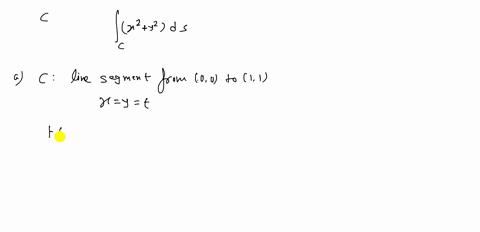 C ∫_C (x²+y²) ds
a) C: line segment from (0,0) to (1,1)
x=y=t